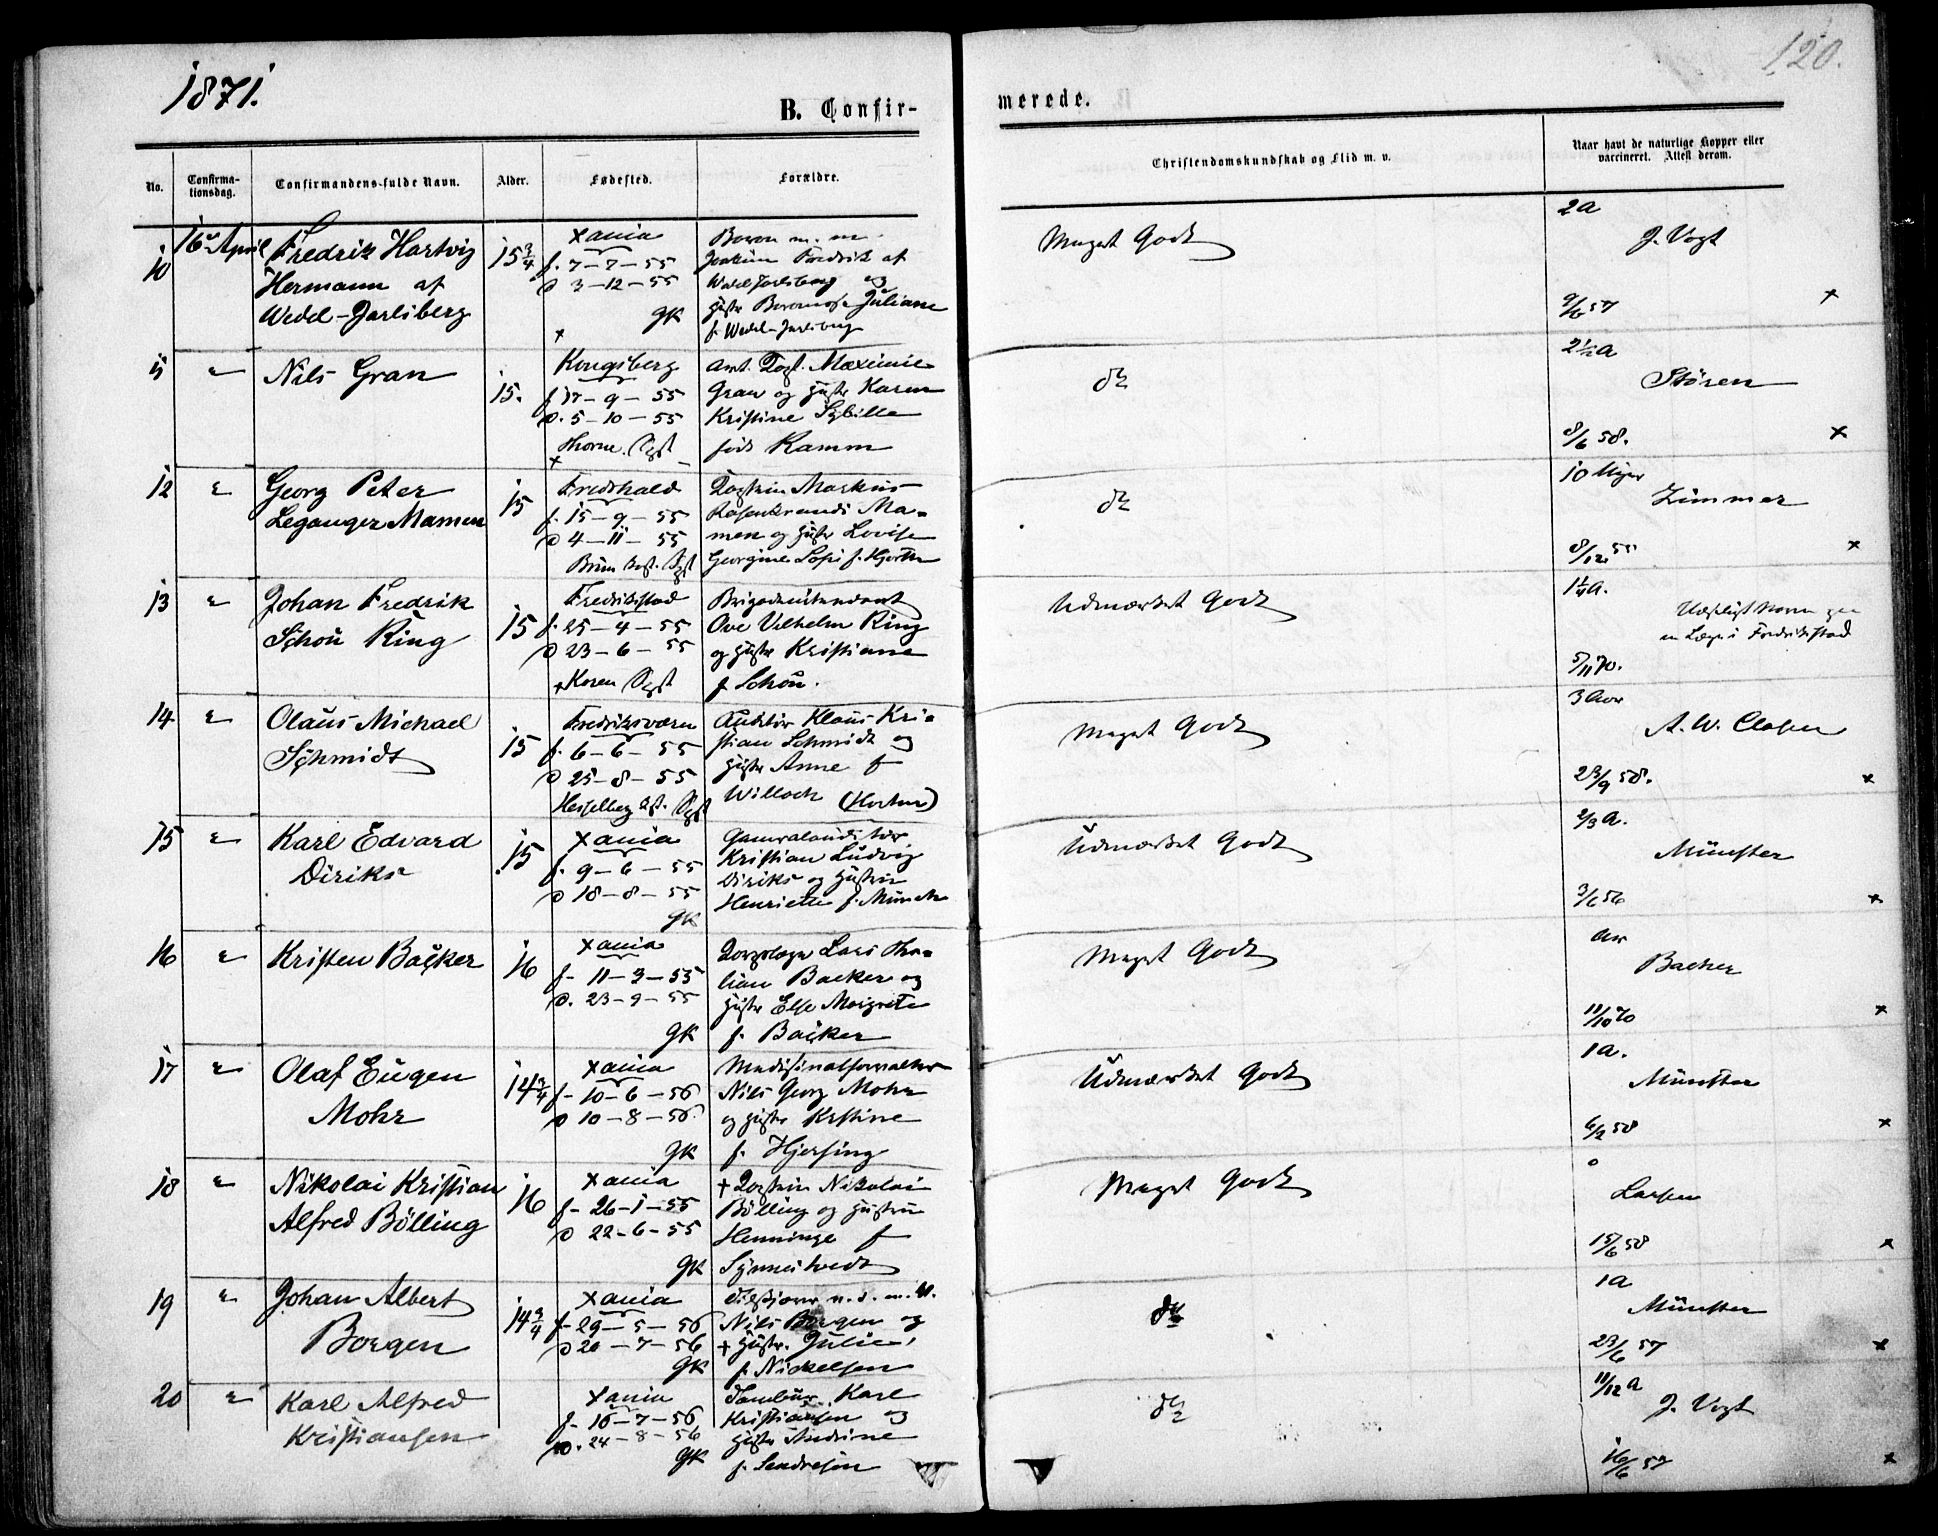 1871.
120.
B. Confir-
merede.
No.
Confirma-
tionsdag.
Confirmandens fulde Navn.
Alder.
Fødested.
Forældre.
Christendomskundskab og Flid m. v.
Naar havt de naturlige Kopper eller
vaccineret. Attest derom.
10 16 April Fredrik Hartvig 15 3/4 Xania Baron m. m. Meget Godt 2a
f. 7-7-55 Joakim Fredrik af J. Vogt
Hermann af d 3-12-55 Wedel Jarlsberg og
Wedel-Jarlsberg GK Hustr Juliane 9/6 57 +
+ f. Wedel-Jarlsberg
11 " Nils Gran 15. Kongsberg Maximi- do 2½a
f 17-9-55 Gran og Hustr Karen Støren
d. 5-10-55 Kristine Sybille
Sgpst født Ramm 8/6 58. +
+
12 " Georg Peter 15 Fredshald Markus do 10 Uger
Leganger Mamen f. 15-9-55 Rosenkrands Ma- Zimmer
d 4-11-55 men og Hustr Lovise
Sgpst Georgine Sofie f. Hjorth 8/12 55 +
13 " Johan Fredrik 15 Fredrikstad Brigadeintendant Udmærket Godt 1¼a.
Schou Ring f. 25-4-55 Ove Vilhelm Ring
d 23-6-55 og Hustr Kristiane en Læge i Fredrikstad
+ Koren Sgpst f Schou. 5/11 70.
14 " Olaus Michael 15 Fredriksværn Auditør Klaus Kri- Meget Godt 3 Aar
Schmidt f. 6-6-55 stian Schmidt og A. W. Clasen
d 25-8-55 Hustr Anne f
Hesselberg Sgpst Willoch (Horten) 23/9 58. +
15 " Karl Edvard 15 Xania Generalauditør Udmærket Godt 2/3 a.
Diriks f. 9-6-55 Kristian Ludvig Münster
d 18-8-55 Diriks og Hustru
GK Henriette f. Munch 3/6 56 +
16 " Kristen Backer 16 Xania Korpslæge Lars Meget Godt
f. 11-3-55 Backer og Backer
d. 23-9-55 Hustr Else Margrete
GK f. Backer 11/10 70 +
17 " Olaf Eugen 14 3/4 Xania Medisinalforvalter Udmærket Godt 1a.
Mohr f. 10-6-56 Nils Georg Mohr Münster
d 10-8-56. og Hustr Kristine
GK f. Hjersing 6/2 58 +
18 " Nikolai Kristian 16 Xania + Nikolai Meget Godt o
Alfred Bølling f. 26-1-55 Bølling og Hustru Larsen
d 22-6-55 Henninge f
GK Synnestvedt 15/6 58 +
19 " Johan Albert 14 3/4 Xania do 1a
Borgen f. 29-5-56 Nils Borgen og Münster
d 20-7-56 + Hustr. Julie
GK f. Nickelsen 23/6 57 +
20 " Karl Alfred Xania Tambur Karl do 11/12 a
Kristiansen f. 16-7-56 Kristiansen og J. Vogt
d. 24-8-56 Hustr Andrine
GK f. 16/6 57 +